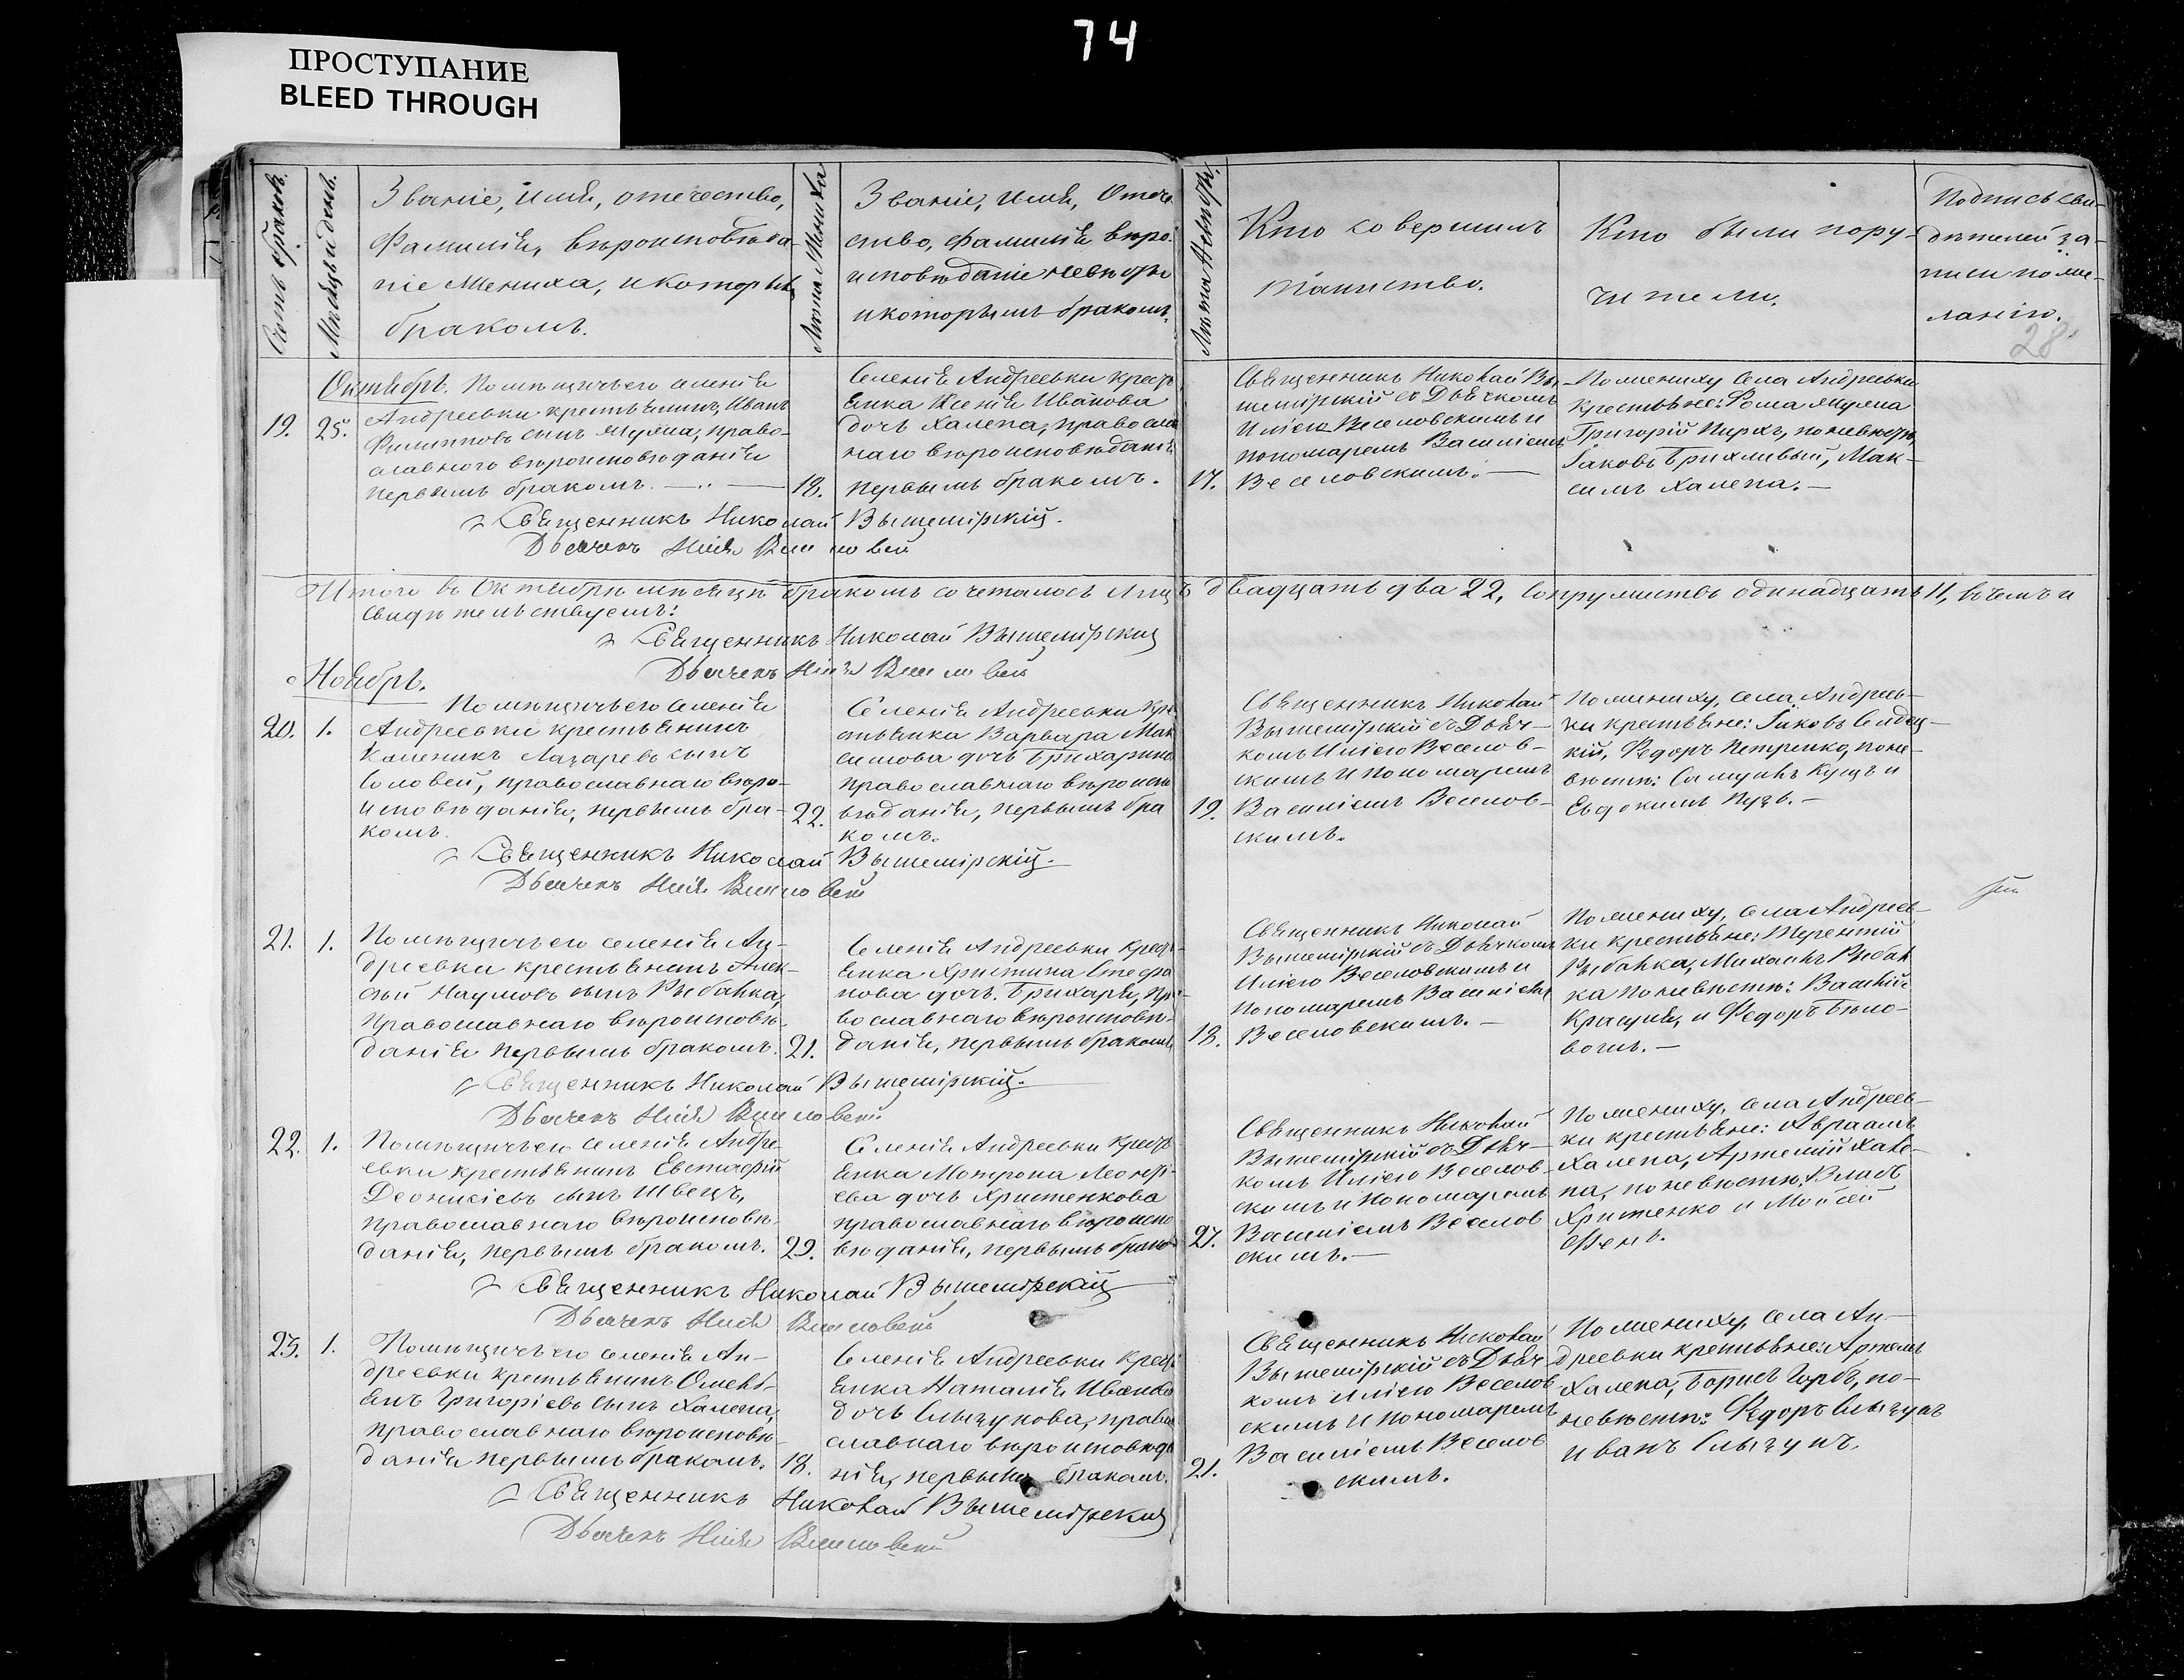 74
ПРОСТУПАНИЕ
BLEED THROUGH
Счетъ браковъ.
Мѣсяцъ и день.
Званіе, имя, отечество,
Фамилія, вѣроисповѣда-
ніе Жениха, и которымъ
бракомъ.
Лѣта Жениха
Званіе, имя, Отече-
ство, фамилія вѣро-
исповѣданіе невѣсты
и которымъ бракомъ.
Лѣта Невѣсты.
Кто совершилъ
таинство.
Кто были пору-
чители.
Подпись сви-
дѣтелей за-
писи по же-
ланію.
28
Октябрь. Помѣщичьего селенія
19. 25. Андреевки крестьянинъ Иванъ
Филипповъ сынъ Жуляпа, право-
славного вѣроисповѣданія
первымъ бракомъ.
18.
Селенія Андреевки кресть
янка Ксенія Иванова
дочь Халепа, правосла
наго вѣроисповѣданія
первымъ бракомъ.
17.
Священникъ Николай Вы-
шемірскій съ Дьячкомъ
Иліею Веселовскимъ и
пономаремъ Василіемъ
Веселовскимъ.
По жениху Села Андреевки
крестьяне: Фома
Григорій Пирхъ, по невѣстѣ,
Іаковъ Брихливый, Мак-
симъ Халепа.
Священникъ Николай Вышемірскій.
Дьячекъ Илія
Итого въ Октябрѣ мѣсяцѣ бракомъ сочеталось лицъ двадцать два 22, супружествъ одинадцать 11, въ чемъ и
свидѣтельствуемъ:
Священникъ Николай Вышемірскій
Дьячекъ Илія
Ноябрь.
Помѣщичьего селенія
20. 1. Андреевки крестьянинъ
Каленикъ Лазаревъ сынъ
Соловей, православнаго вѣро-
исповѣданія, первымъ бра-
комъ.
22.
Селенія Андреевки кре
стьянка Варвара Мак
симова дочь
православнаго вѣроиспо
вѣданія, первымъ бра
комъ.
19.
Священникъ Николай
Вышемірскій съ Дьяч-
комъ Иліею Веселов-
скимъ и пономаремъ
Василіемъ Веселов-
скимъ.
По жениху, села Андреев-
ки крестьяне: Іаковъ
Федоръ Петренко, по не-
вѣстѣ: Самуилъ Куцъ и
Евдокимъ Пузь.
Священникъ Николай Вышемірскій.
Дьячекъ Илія
21. 1. Помѣщичьего селенія Ан-
дреевки крестьянинъ Алек-
сѣй Наумовъ сынъ Рыбалка,
Православнаго вѣроисповѣ-
данія первымъ бракомъ.
21.
Селенія Андреевки кресть-
янка Христина Стефа
нова дочь, Брихаря, Пра-
вославнаго вѣроисповѣ-
данія, первымъ бракомъ.
18.
Священникъ Николай
Вышемірскій съ Дьячкомъ
Иліею Веселовскимъ и
Пономаремъ Василіемъ
Веселовскимъ.
По жениху, села Андреев-
ки крестьяне: Терентій
Рыбалка, Михаилъ Рыбал
ка по невѣстѣ: Василій
Красуля, и Федоръ Бѣло-
вошъ.
Священникъ Николай Вышемірскій.
Дьячекъ Илія
22. 1. Помѣщичьего селенія Андре-
евки крестьянинъ Евстафій
Деонисіевъ сынъ Швецъ,
православнаго вѣроисповѣ-
данія, первымъ бракомъ.
29.
Селенія Андреевки кресть
янка Мотрона
ева дочь Христенкова
православнаго вѣроиспо
вѣданія, первымъ брако
27.
Священникъ Николай
Вышемірскій съ Дьяч-
комъ Иліею Веселов-
скимъ и Пономаремъ
Василіемъ Веселов
скимъ.
По жениху, села Андреев-
ки крестьяне: Авраамъ
Халепа, Артемій Хале-
па, по невѣстѣ, Власъ
Христенко и Мойсей
Священникъ Николай Вышемірскій
Дьячекъ Илія
23. 1. Помѣщичьего селенія Ан-
дреевки крестьянинъ Омель-
янъ Григоріевъ сынъ Халепа,
православнаго вѣроисповѣ-
данія первымъ бракомъ.
18.
Селенія Андреевки кресть
янка Наталія Иванова
дочь Слызунова, право
славнаго вѣроисповѣда
нія, первымъ бракомъ.
21.
Священникъ Николай
Вышемірскій съ Дьяч
комъ Иліею Веселов
скимъ и пономаремъ
Василіемъ Веселов
скимъ.
По жениху, села Ан-
дреевки крестьяне: Артемъ
Халепа, Борисъ Горбъ, по-
невѣстѣ: Федоръ Слызунъ
Иванъ Слызунъ.
Священникъ Николай Вышемірскій
Дьячекъ Илія